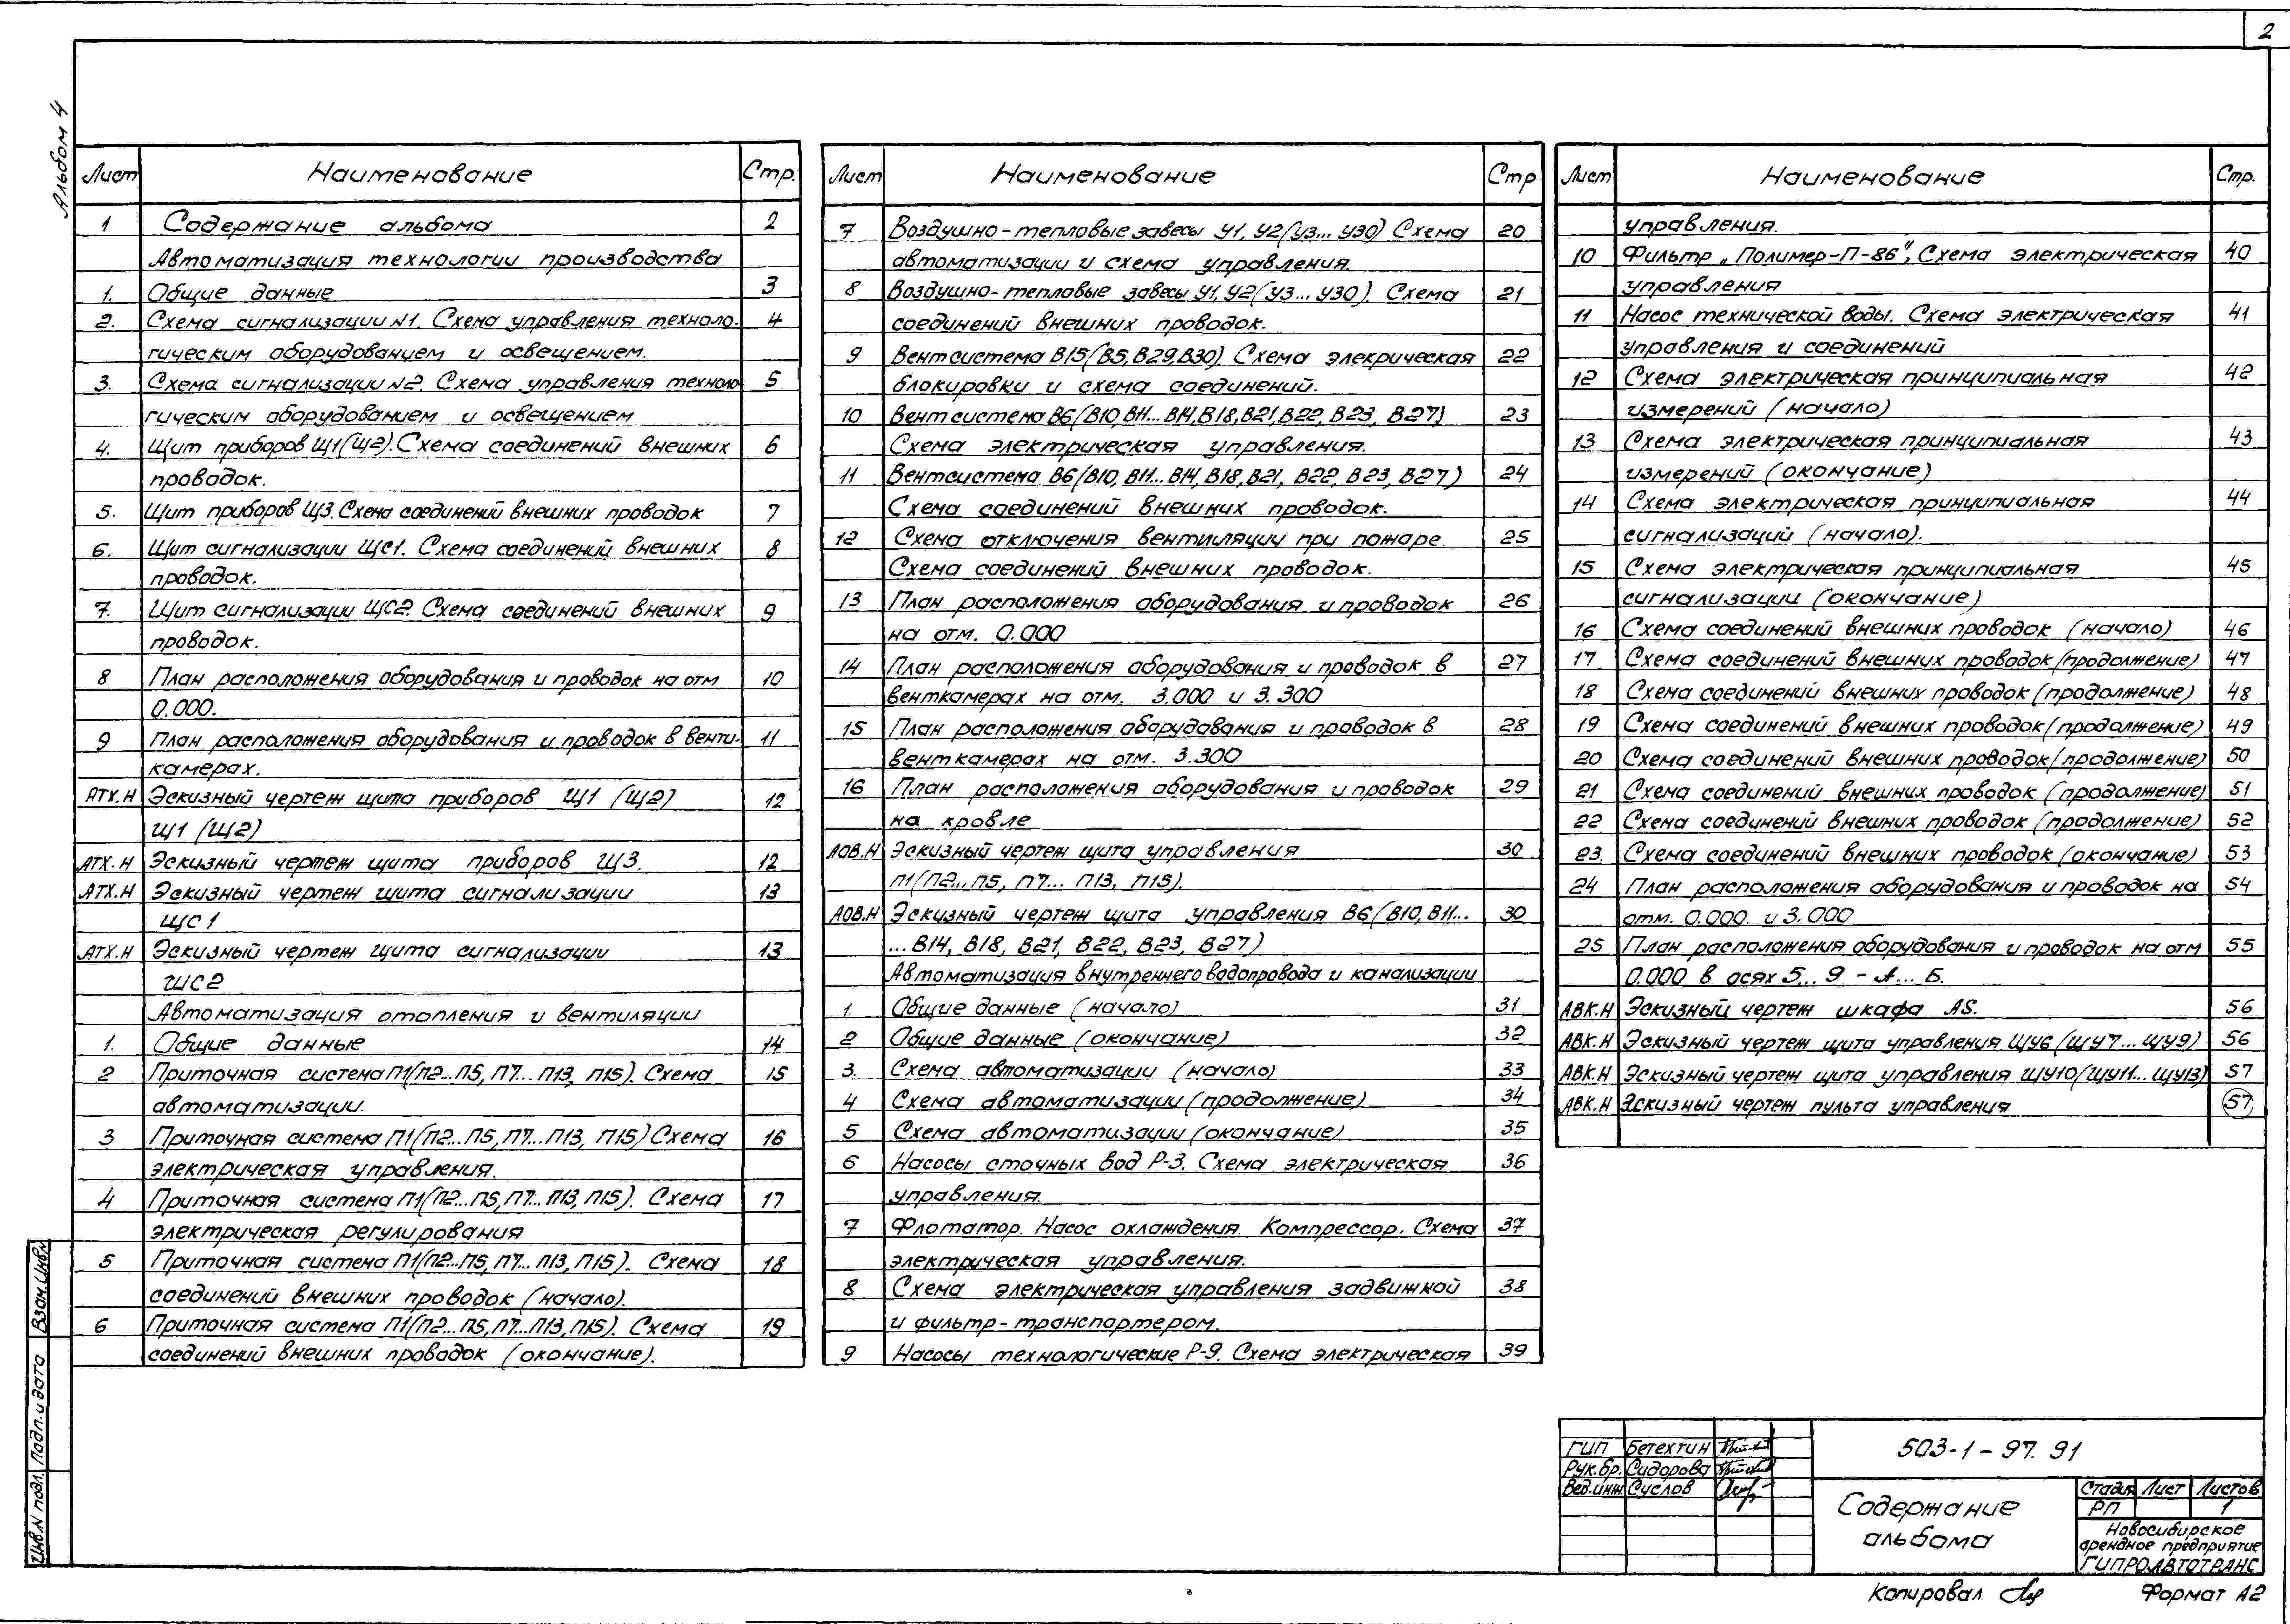 2
Альбом 4
Лист Наименование Стр.
1 Содержание альбома 2
Автоматизация технологии производства
1. Общие данные 3
2. Схема сигнализации N1. Схема управления техноло- 4
гическим оборудованием и освещением.
3. Схема сигнализации N2. Схема управления техноло 5
гическим оборудованием и освещением
4. Щит приборов Щ1(Щ2). Схема соединений внешних 6
проводок.
5. Щит приборов Щ3. Схема соединений внешних проводок 7
6. Щит сигнализации ЩС1. Схема соединений внешних 8
проводок.
7. Щит сигнализации ЩС2. Схема соединений внешних 9
проводок.
8 План расположения оборудования и проводок на отм 10
0.000.
9 План расположения оборудования и проводок в венти- 11
камерах.
АТХ.Н Эскизный чертеж щита приборов Щ1 (Щ2) 12
Щ1 (Щ2)
АТХ.Н Эскизный чертеж щита приборов Щ3. 12
АТХ.Н Эскизный чертеж щита сигнализации 13
ЩС1
АТХ.Н Эскизный чертеж щита сигнализации 13
ЩС2
Автоматизация отопления и вентиляции
1. Общие данные 14
2 Приточная система П1(П2...П5, П7...П13, П15). Схема 15
автоматизации.
3 Приточная система П1(П2...П5, П7...П13, П15) Схема 16
электрическая управления.
4 Приточная система П1(П2...П5, П7...П13, П15). Схема 17
электрическая регулирования
5 Приточная система П1(П2...П5, П7...П13, П15). Схема 18
соединений внешних проводок (начало).
6 Приточная система П1(П2...П5, П7...П13, П15). Схема 19
соединений внешних проводок (окончание).
Лист Наименование Стр
7 Воздушно-тепловые завесы У1, У2(У3...У30) Схема 20
автоматизации и схема управления.
8 Воздушно-тепловые завесы У1, У2(У3...У30). Схема 21
соединений внешних проводок.
9 Вентсистема В15(В5, В29, В30). Схема элекрическая 22
блокировки и схема соединений.
10 Вентсистема В6(В10, В11...В14, В18, В21, В22, В23, В27) 23
Схема электрическая управления.
11 Вентсистема В6(В10, В11...В14, В18, В21, В22, В23, В27) 24
Схема соединений внешних проводок.
12 Схема отключения вентиляции при пожаре. 25
Схема соединений внешних проводок.
13 План расположения оборудования и проводок 26
на отм. 0.000
14 План расположения оборудования и проводок в 27
венткамерах на отм. 3.000 и 3.300
15 План расположения оборудования и проводок в 28
венткамерах на отм. 3.300
16 План расположения оборудования и проводок 29
на кровле
АОВ.Н Эскизный чертеж щита управления 30
П1(П2...П5, П7...П13, П15).
АОВ.Н Эскизный чертеж щита управления В6(В10, В11... 30
...В14, В18, В21, В22, В23, В27)
Автоматизация внутреннего водопровода и канализации
1. Общие данные (начало) 31
2 Общие данные (окончание) 32
3. Схема автоматизации (начало) 33
4 Схема автоматизации (продолжение) 34
5 Схема автоматизации (окончание) 35
6 Насосы сточных вод Р-3. Схема электрическая 36
управления.
7 Флотатор. Насос охлаждения. Компрессор. Схема 37
электрическая управления.
8 Схема электрическая управления задвижкой 38
и фильтр-транспортером.
9 Насосы технологические Р-9. Схема электрическая 39
Лист Наименование Стр.
управления.
10 Фильтр „Полимер-П-86". Схема электрическая 40
управления
11 Насос технической воды. Схема электрическая 41
управления и соединений
12 Схема электрическая принципиальная 42
измерений (начало)
13 Схема электрическая принципиальная 43
измерений (окончание)
14 Схема электрическая принципиальная 44
сигнализаций (начало).
15 Схема электрическая принципиальная 45
сигнализации (окончание)
16 Схема соединений внешних проводок (начало) 46
17 Схема соединений внешних проводок (продолжение) 47
18 Схема соединений внешних проводок (продолжение) 48
19 Схема соединений внешних проводок (продолжение) 49
20 Схема соединений внешних проводок (продолжение) 50
21 Схема соединений внешних проводок (продолжение) 51
22 Схема соединений внешних проводок (продолжение) 52
23. Схема соединений внешних проводок (окончание) 53
24 План расположения оборудования и проводок на 54
отм. 0.000. и 3.000
25 План расположения оборудования и проводок на отм 55
0.000 в осях 5...9 - А...Б.
АВК.Н Эскизный чертеж шкафа AS. 56
АВК.Н Эскизный чертеж щита управления ЩУ6 (ЩУ7...ЩУ9) 56
АВК.Н Эскизный чертеж щита управления ЩУ10(ЩУ11...ЩУ13) 57
АВК.Н Эскизный чертеж пульта управления 57
Инв.N подл. Подп. и дата Взам.инв.N
ГИП Бетехтин
Рук.бр. Сидорова
Вед.инж Суслов
503-1-97.91
Содержание
альбома
Стадия Лист Листов
РП 1
Новосибирское
арендное предприятие
ГИПРОАВТОТРАНС
Копировал
Формат А2